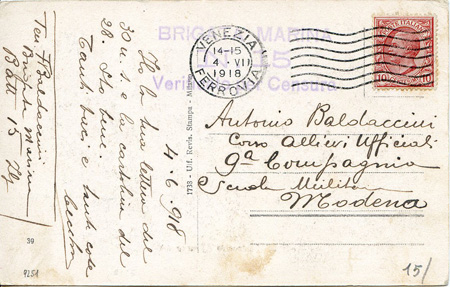 BRIGATA MARINA
Verificato Censura
VENEZIA
14-15
4 VII
1918
FERROVIA
POSTE ITALIANE
10
Antonio Baldaccini
Corso Allievi Ufficiali
9ª Compagnia
Scuola Militare
Modena
15/
1733 - Uff. Revis. Stampa - Milano
4.6.918
Ho la tua lettera del
30 u.s. e la cartolina del
28. Sto bene.
Tanti baci e tante cose
Ten Baldaccini
Brigata Marina
Batt
39
9251